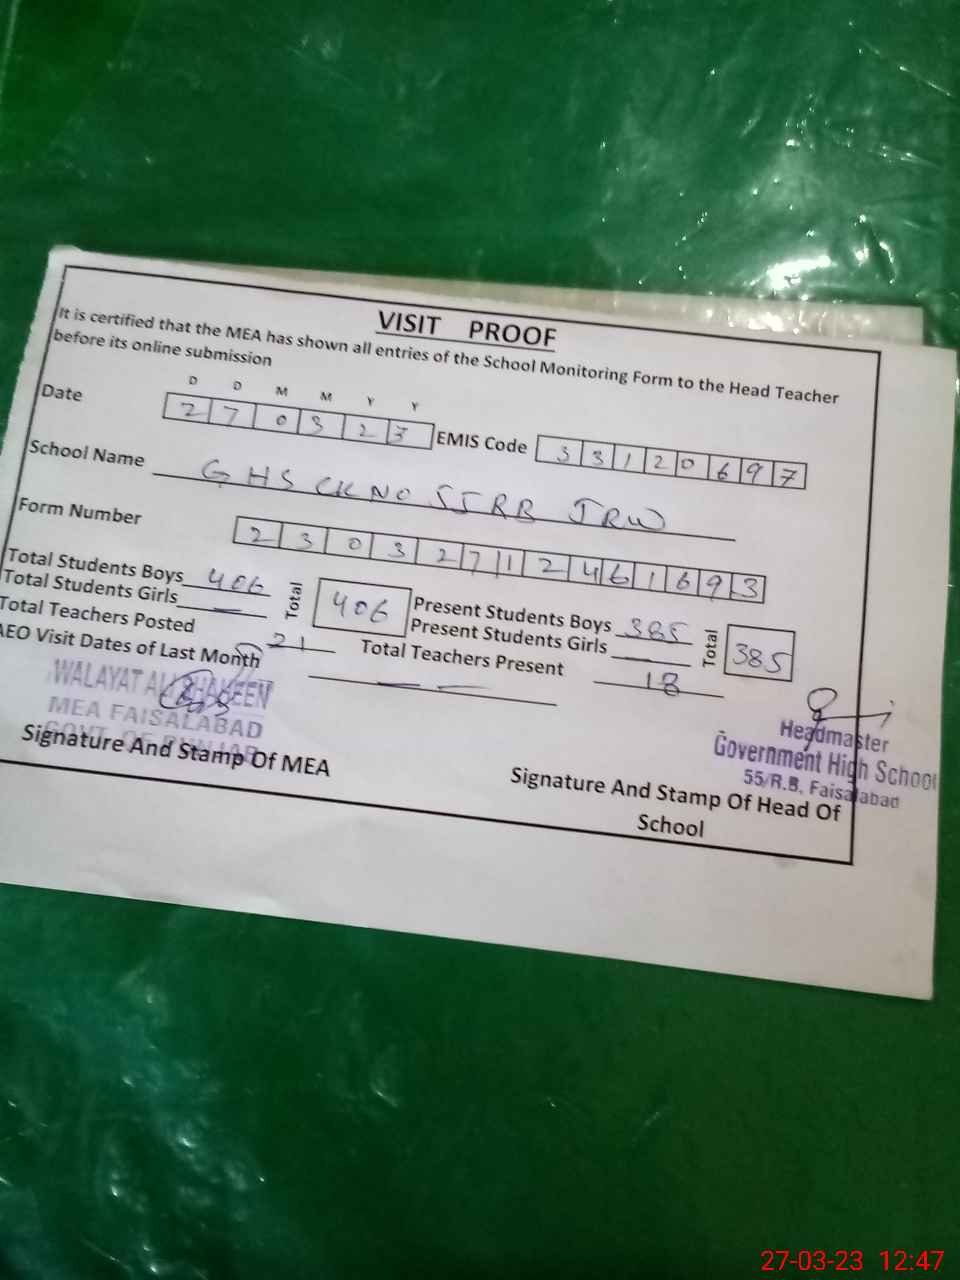 VISIT PROOF
It is certified that the MEA has shown all entries of the School Monitoring Form to the Head Teacher
before its online submission
D D M M Y Y
Date 2 7 0 3 2 3 EMIS Code 3 3 1 2 0 6 9 7
School Name G H S CK NO 55 RB JRW
Form Number 2 3 0 3 2 7 1 2 4 6 1 6 9 3
Total Students Boys 406 Total 406 Present Students Boys 385 Total 385
Total Students Girls — Present Students Girls —
Total Teachers Posted 21 Total Teachers Present 18
AEO Visit Dates of Last Month — —
WALAYAT ALI SHAHEEN
MEA FAISALABAD
GOVT. OF PUNJAB
Signature And Stamp Of MEA
Headmaster
Government High School
55/R.B, Faisalabad
Signature And Stamp Of Head Of
School
27-03-23 12:47